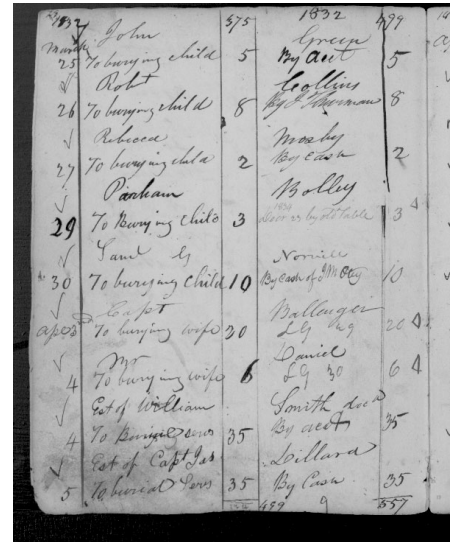 1832 375 1832 499
John Green
March 25 To burying child 5 By acct 5
Robt Collins
26 To burying child 8 By J Thurman 8
Rebecca Mosby
27 To burying child 2 By Cash 2
Parham Bolley
29 To Burying Child 3 by Table 3
Saml G Norvell
30 To burying Child 10 By Cash of J M Otey 10
Capt Ballenger
Apr 3 To burying wife 30 LG 29 20
Mr Daniel
4 To burying wife 6 LG 30 6
Est of William Smith decd
4 To Burial 35 By acct 35
Est of Capt Jas Dillard
5 To burial 35 By Cash 35
499 557